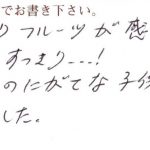 でお書き下さい。
りフルーツが感
すっきり---!
のにがてな子供
した。